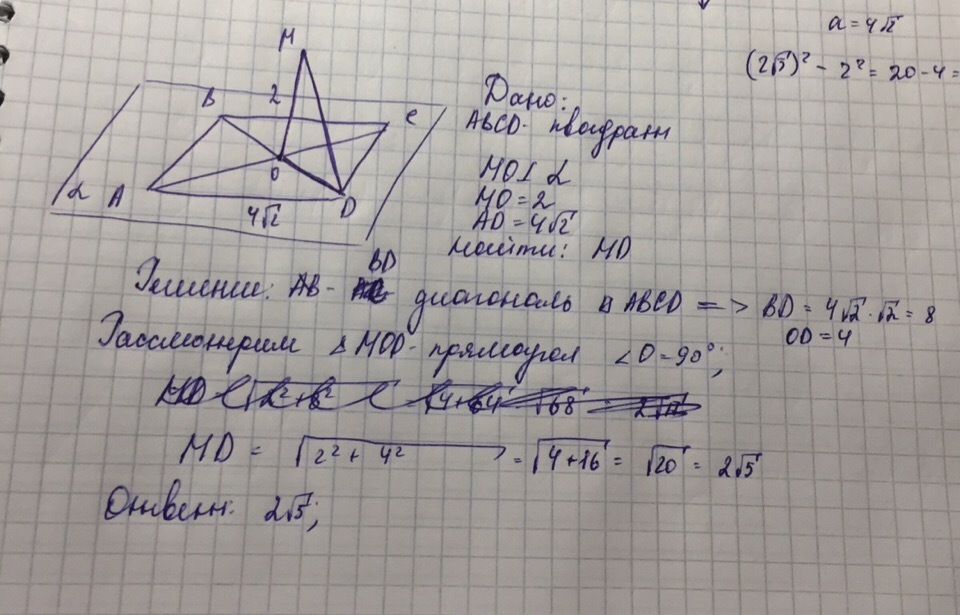 a = 4√2
(2√5)² - 2² = 20 - 4 =
M
B 2 C
O
α A D
4√2
Дано:
ABCD - квадрат
MO ⊥ α
MO = 2
AD = 4√2
Найти: MD
BD
Решение: AB - диагональ ABCD => BD = 4√2 · √2 = 8
OD = 4
Рассмотрим Δ MOD - прямоугол ∠O = 90°;
MD = √2² + 4² = √4 + 16 = √20 = 2√5
Ответ: 2√5;